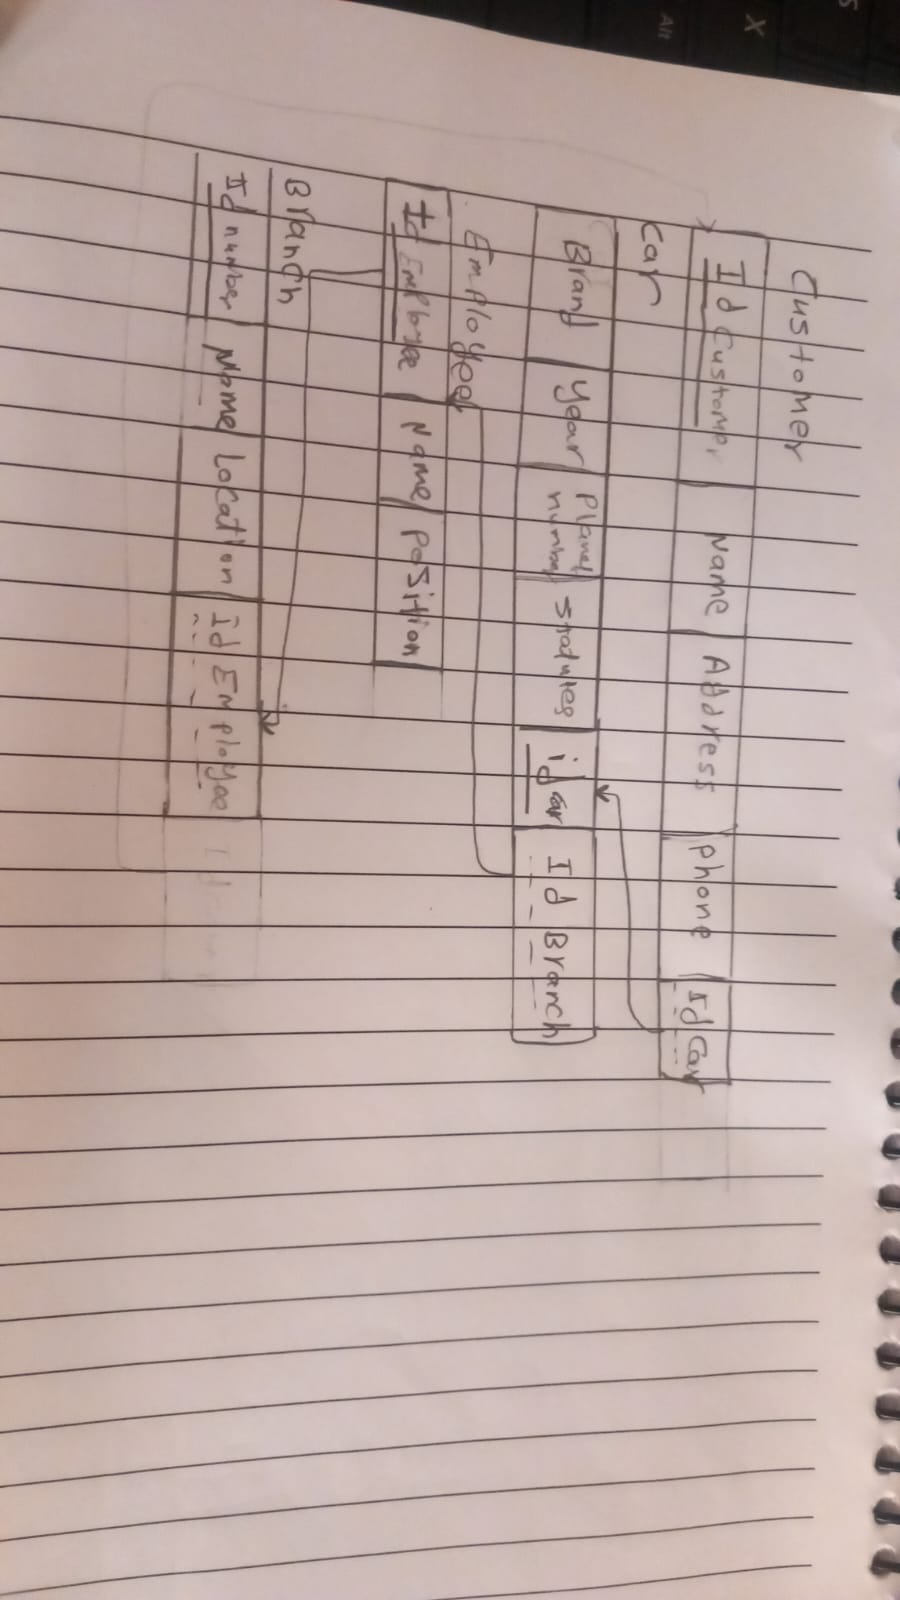 Customer
Id Customer Name Address Phone Id Car
Car
Brand Year Planet number Stadutes id car Id Branch
Employee
Id Employee Name Position
Branch
Id number Name Location Id Employee